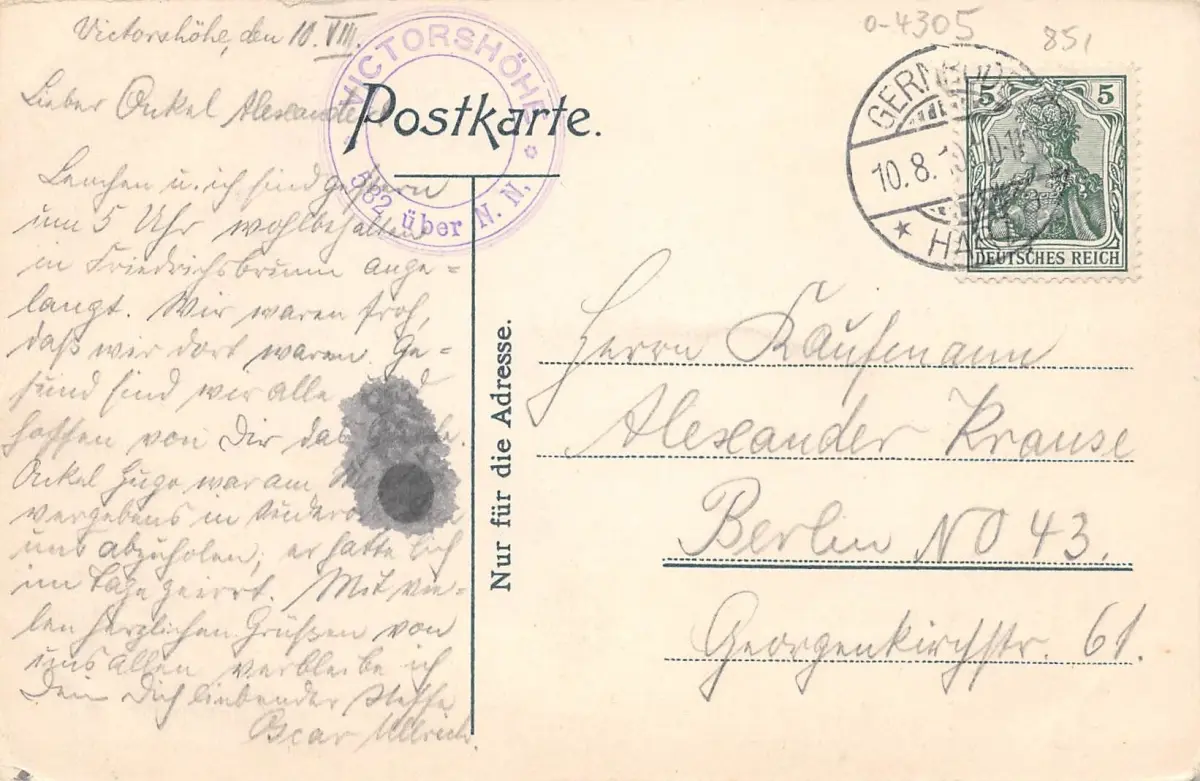 o-4305
851
Victorshöhe, den 10. VIII.
VICTORSHÖHE
582 über N. N.
Postkarte.
GERNRODE
10.8.
HARZ
5 5
DEUTSCHES REICH
Lieber Onkel Alexander
Lenchen u. ich sind gestern
um 5 Uhr wohlbehalten
in Friedrichsbrunn ange=
langt. Wir waren froh,
daß wir dort waren. Ge=
sund sind wir alle und
hoffen von Dir das
Onkel Hugo war am
vergebens in
uns abzuholen; er hatte sich
im Tage geirrt. Mit vie=
len herzlichen Grüßen von
uns allen verbleibe ich
Dein Dich liebender Neffe
Oscar Ullrich.
Nur für die Adresse.
Herrn Kaufmann
Alexander Krause
Berlin NO 43
Georgenkirchstr. 61.